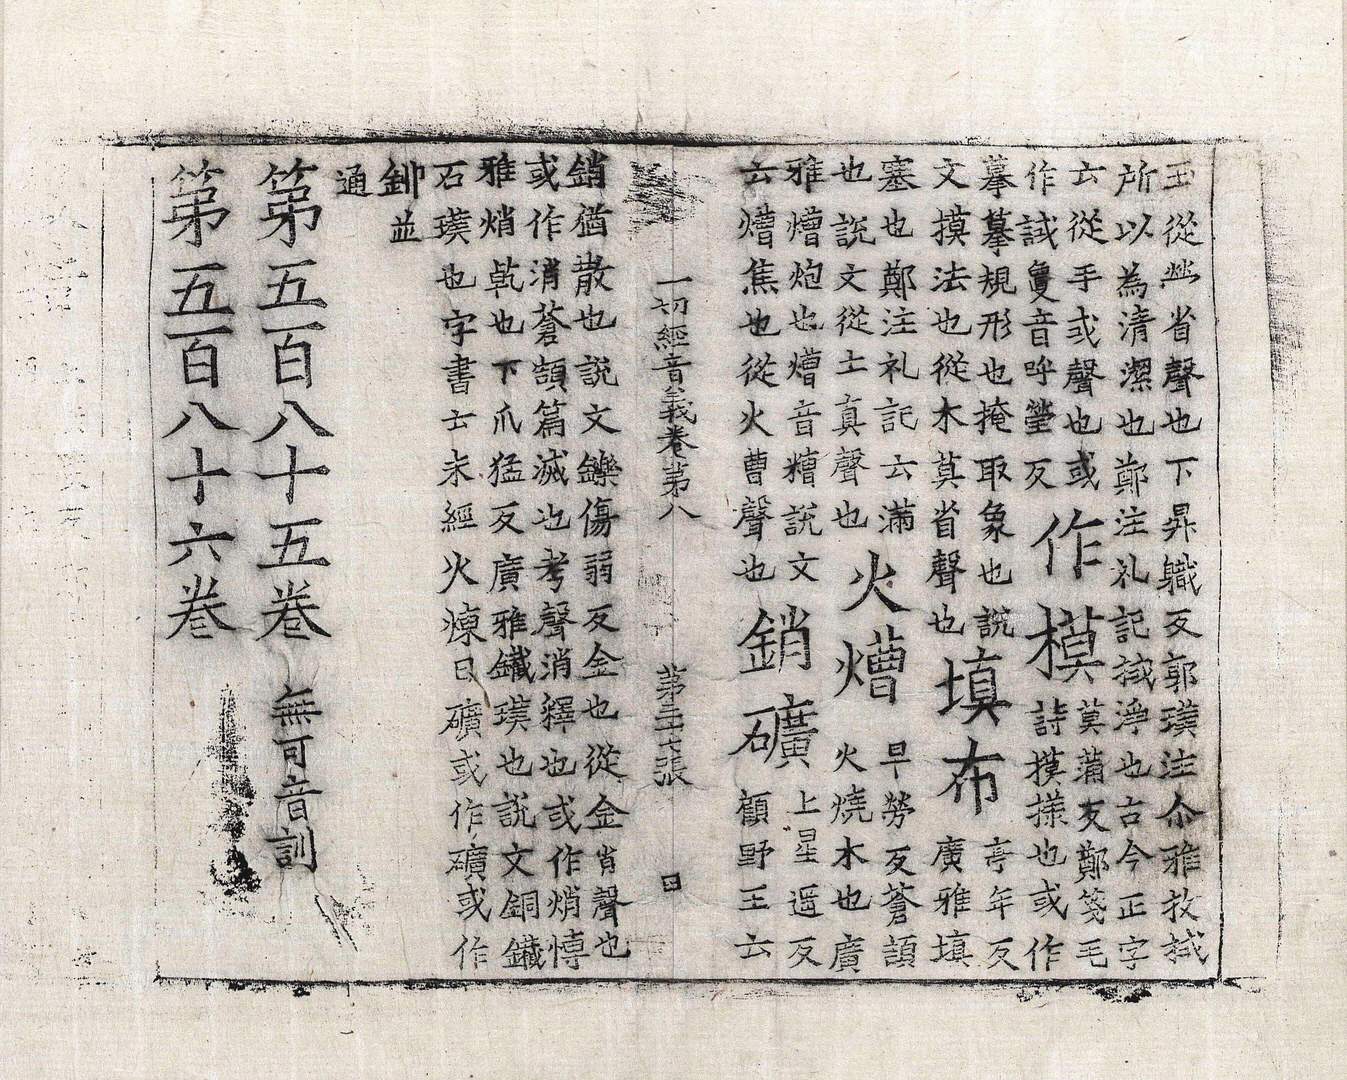 玉從𤇾省聲也下昇職反郭璞注尒雅抆拭
所以為清潔也鄭注礼記拭淨也古今正字
云從手或聲也或
作㧑音呼瑩反
作模
莫蒲反鄭箋毛
詩摸㨾也或作
摹摹規形也掩取象也說
文摸法也從木莫省聲也
填布
亭年反
廣雅填
塞也鄭注礼記云滿
也說文從土真聲也
火熷
早勞反蒼頡
火燒木也廣
雅熷炮也熷音糟說文
云熷焦也從火曹聲也
銷礦
上星遥反
顧野王云
一切經音義卷第八
第三十七張
銷猶散也說文鑠傷弱反金也從金肖聲也
或作消蒼頡篇滅也考聲消釋也或作焇愽
雅焇乹也下爪猛反廣雅鐵璞也說文銅鐵
石璞也字書云未經火煉曰礦或作礦或作
釧並
通
第五百八十五卷
無可音訓
第五百八十六卷